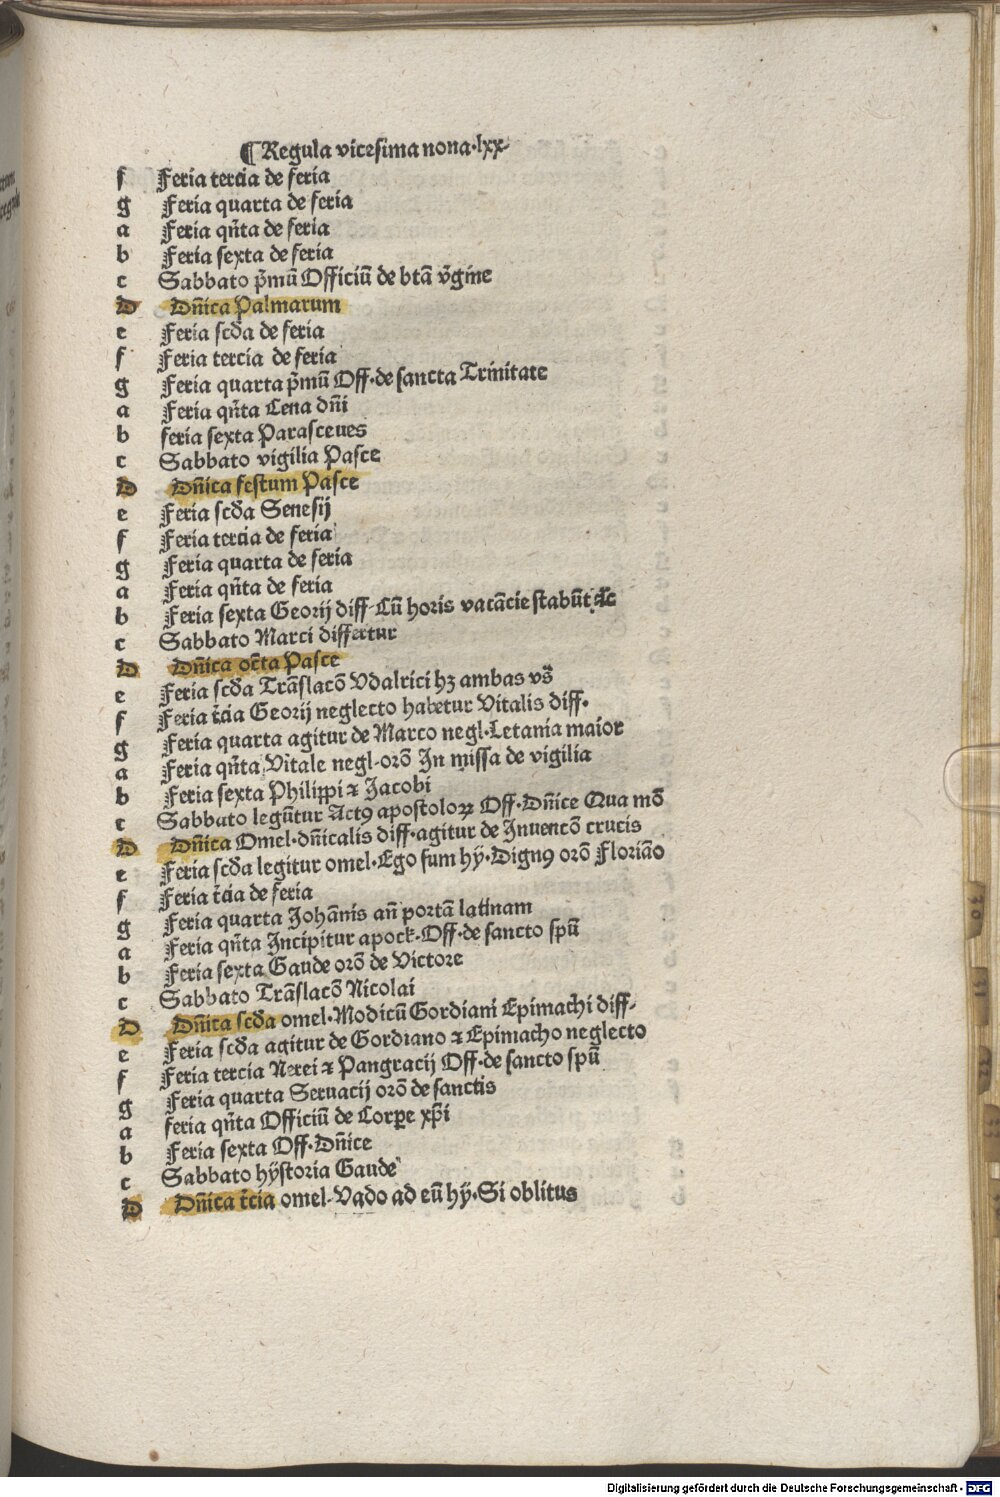 ¶ Regula vicesima nona·lxx·
f Feria tercia de feria
g Feria quarta de feria
a Feria qn̄ta de feria
b Feria sexta de feria
c Sabbato p̄mū Officiū de btā v̄gine
D Dn̄ica Palmarum
e Feria scd̄a de feria
f Feria tercia de feria
g Feria quarta p̄mū Off·de sancta Trinitate
a Feria qn̄ta Cena dn̄i
b feria sexta Parasceues
c Sabbato vigilia Pasce
D Dn̄ica festum Pasce
e Feria scd̄a Senesij
f Feria tercia de feria
g Feria quarta de feria
a Feria qn̄ta de feria
b Feria sexta Georij diff·Cū horis vacācie stabūt ⁊c
c Sabbato Marci differtur
D Dn̄ica oct̄a Pasce
e Feria scd̄a Trāslacō Vdalrici hꝫ ambas vs̄
f Feria t̄cia Georij neglecto habetur Vitalis diff·
g Feria quarta agitur de Marco negl·Letania maior
a Feria qn̄ta Vitale negl·orō In missa de vigilia
b Feria sexta Philippi ⁊ Jacobi
c Sabbato legūtur Actꝯ apostoloꝝ Off·Dn̄ice Qua mō
D Dn̄ica Omel·dn̄icalis diff·agitur de Inuencō crucis
e Feria scd̄a legitur omel·Ego sum hӱ·Dignꝯ orō Floriāo
f Feria t̄cia de feria
g Feria quarta Johānis an̄ portā latinam
a Feria qn̄ta Incipitur apock·Off·de sancto spū
b Feria sexta Gaude orō de Victore
c Sabbato Trāslacō Nicolai
D Dn̄ica scd̄a omel·Modicū Gordiani Epimachi diff·
e Feria scd̄a agitur de Gordiano ⁊ Epimacho neglecto
f Feria tercia Nerei ⁊ Pangracij Off·de sancto spū
g Feria quarta Seruacij orō de sanctis
a feria qn̄ta Officiū de Corꝑe xp̄i
b Feria sexta Off·Dn̄ice
c Sabbato hӱstoria Gaude
D Dn̄ica t̄cia omel·Vado ad eū hӱ·Si oblitus
Digitalisierung gefördert durch die Deutsche Forschungsgemeinschaft - DFG